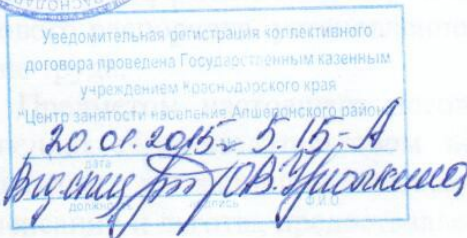 КРАСНОДАР
Уведомительная регистрация коллективного
договора проведена Государственным казенным
учреждением Краснодарского края
"Центр занятости населения Апшеронского района"
20.01.2015 № 5.15-А
дата
Вед. спец. Ю.В.
должность подпись Ф.И.О